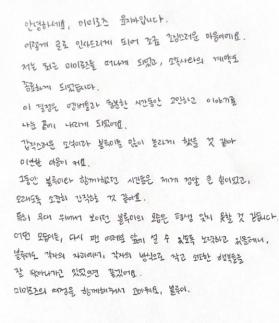 안녕하세요, 미미로즈 윤지아입니다.
이렇게 글로 인사드리게 되어 조금 조심스러운 마음이에요.
저는 최근 미미로즈를 떠나게 되었고, 소속사와의 계약도
종료하게 되었습니다.
이 결정은 멤버들과 충분한 시간동안 고민하고 이야기를
나눈 끝에 내리게 되었어요.
갑작스러운 소식이라 블루미들 많이 놀라게 했을 것 같아
미안한 마음이 커요.
그동안 블루미와 함께했던 시간들은 제게 정말 큰 힘이었고,
오래도록 소중히 간직하게 될 것 같아요.
특히 무대 위에서 보이던 블루미의 모습은 평생 잊지 못할 것 같습니다.
어떤 모습이든, 다시 팬 여러분 앞에 설 수 있도록 노력하고 있을테니,
블루미도 각자의 자리에서, 각자의 방식으로 작고 소중한 행복들을
잘 찾아나가고 있었으면 좋겠어요.
미미로즈의 여정을 함께해주셔서 고마워요, 블루미.